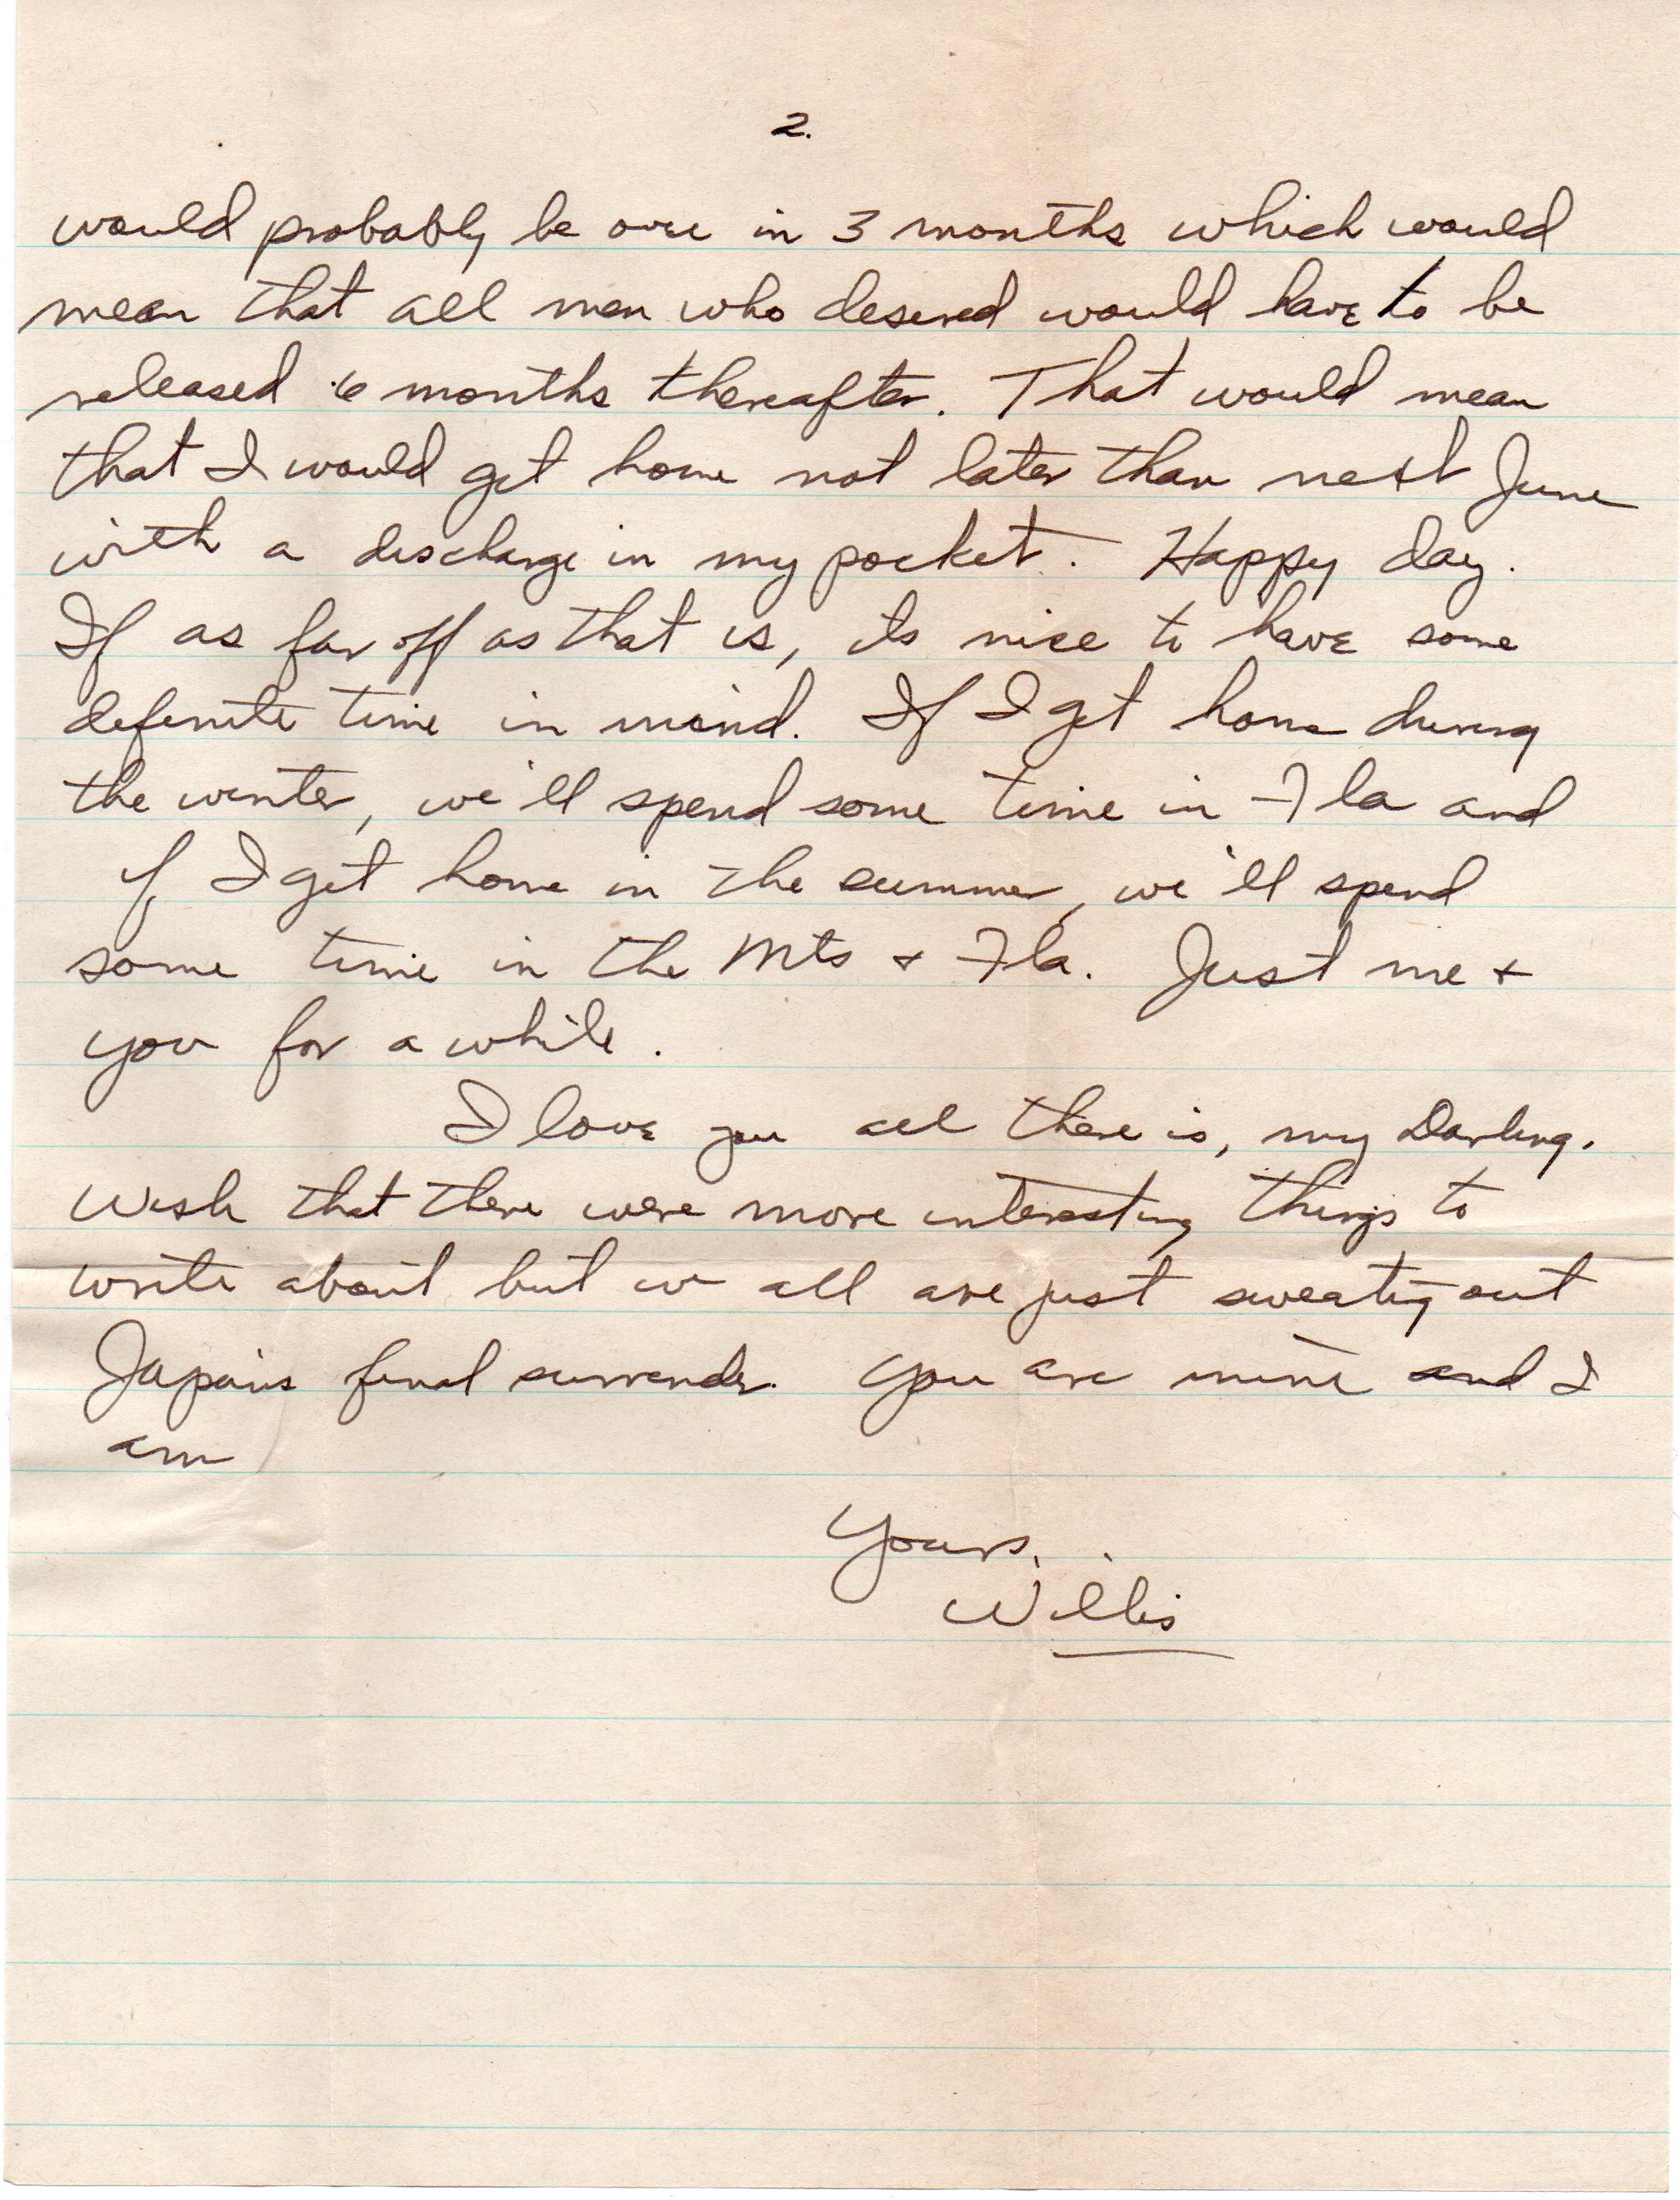 2.
would probably be over in 3 months which would
mean that all men who desired would have to be
released 6 months thereafter. That would mean
that I would get home not later than next June
with a discharge in my pocket. Happy day.
If as far off as that is, its nice to have some
definite time in mind. If I get home during
the winter, we'll spend some time in Fla and
if I get home in the summer, we'll spend
some time in the Mts & Fla. Just me &
you for a while.
I love you all there is, my Darling.
Wish that there were more interesting things to
write about but we all are just sweating out
Japan's final surrender. You are mine and I
am
Yours,
Willis